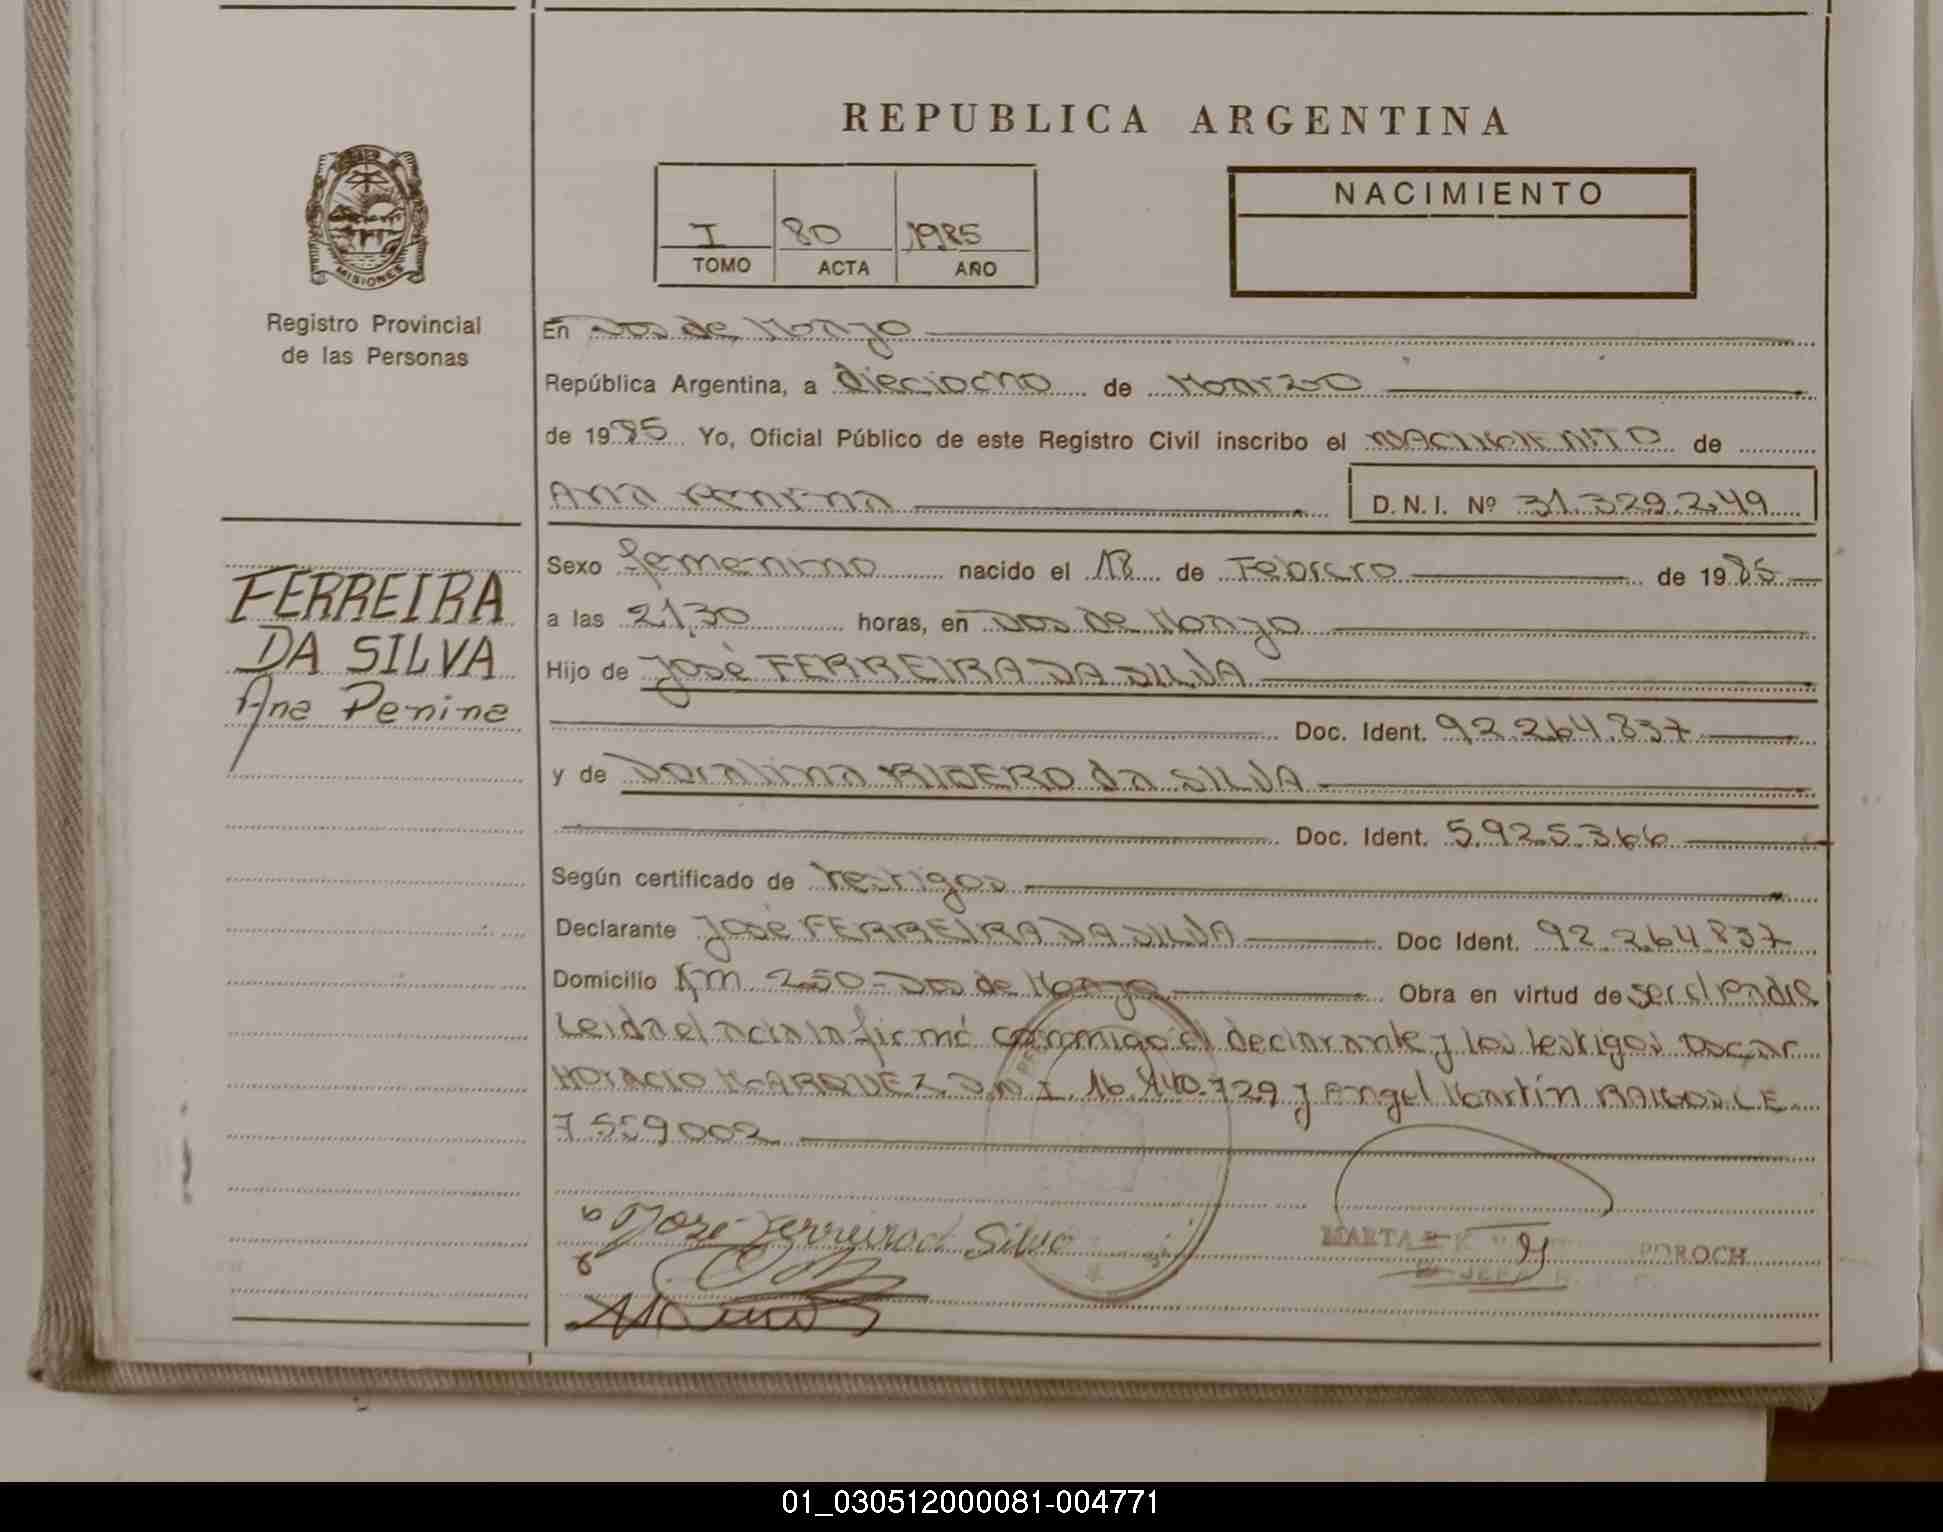 REPUBLICA ARGENTINA
MISIONES
Registro Provincial
de las Personas
I 80 1985
TOMO ACTA AÑO
NACIMIENTO
En Dos de Mayo
República Argentina, a dieciocho de Marzo
de 1985 Yo, Oficial Público de este Registro Civil inscribo el NACIMIENTO de
Ana Penina D.N.I. Nº 31.329.249
FERREIRA
DA SILVA
Ana Penina
Sexo femenino nacido el 18 de Febrero de 1985
a las 21,30 horas, en Dos de Mayo
Hijo de José FERREIRA DA SILVA
Doc. Ident. 92.264.837
y de Doralina RIBERO da SILVA
Doc. Ident. 5.925.366
Según certificado de testigos
Declarante José FERREIRA DA SILVA Doc Ident. 92.264.837
Domicilio Km 250 - Dos de Mayo Obra en virtud de ser el padre
Leida el acta la firma conmigo el declarante y los testigos Oscar
Horacio MARQUEZ D.N.I. 16.440.729 y Angel Martín L.E.
7559002
José Ferreira d Silva
MARTA POROCH
JEFA
01_030512000081-004771